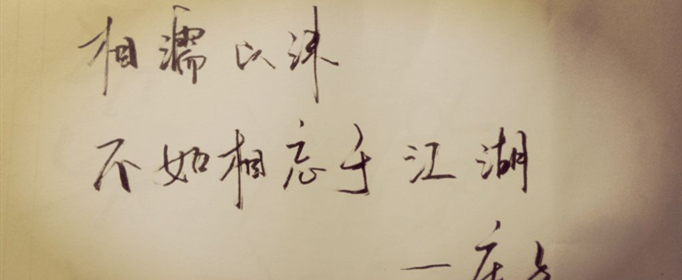 相濡以沫
不如相忘于江湖
—庄